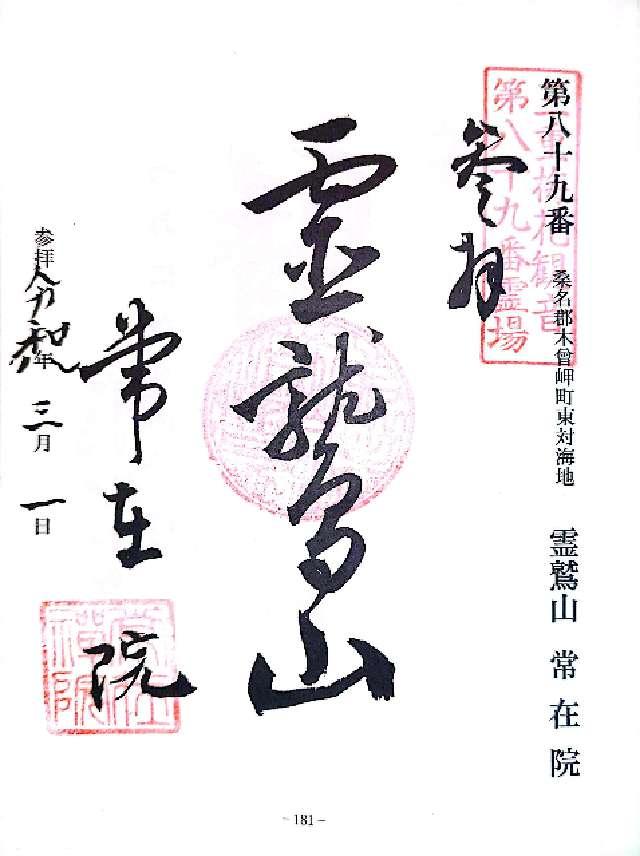 第八十九番 桑名郡木曾岬町東対海地 霊鷲山 常在院
第八十九番霊場
参拝
霊鷲山
常在院
参拝令和年三月一日
-181-